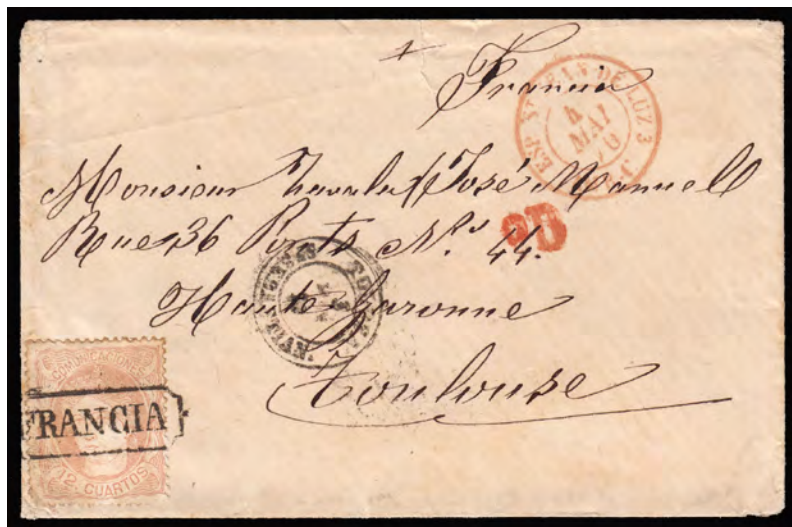 Francia
ESP. ST JEAN DE LUZ 3
4
MAI
70
Monsieur José Manuel
Rue 36 Ponts No. 44.
PD
Haute Garonne
Toulouse
COMUNICACIONES
FRANCIA
12 CUARTOS